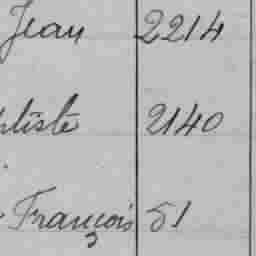 Jean 2214
ptiste 2140
François 51